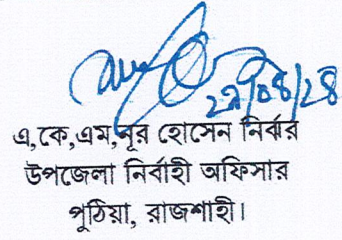 ২৯/০৪/২৪
এ,কে,এম,নূর হোসেন নির্ঝর
উপজেলা নির্বাহী অফিসার
পুঠিয়া, রাজশাহী।